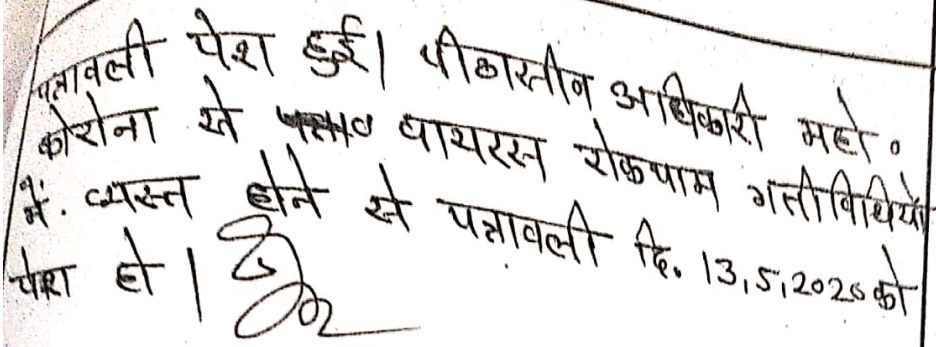 पत्रावली पेश हुई। पीठासीन अधिकारी महो०
कोरोना से वायरस रोकथाम गतीविधियों
में. व्यस्त होने से पत्रावली दि. 13,5,2020 को
पेश हो।